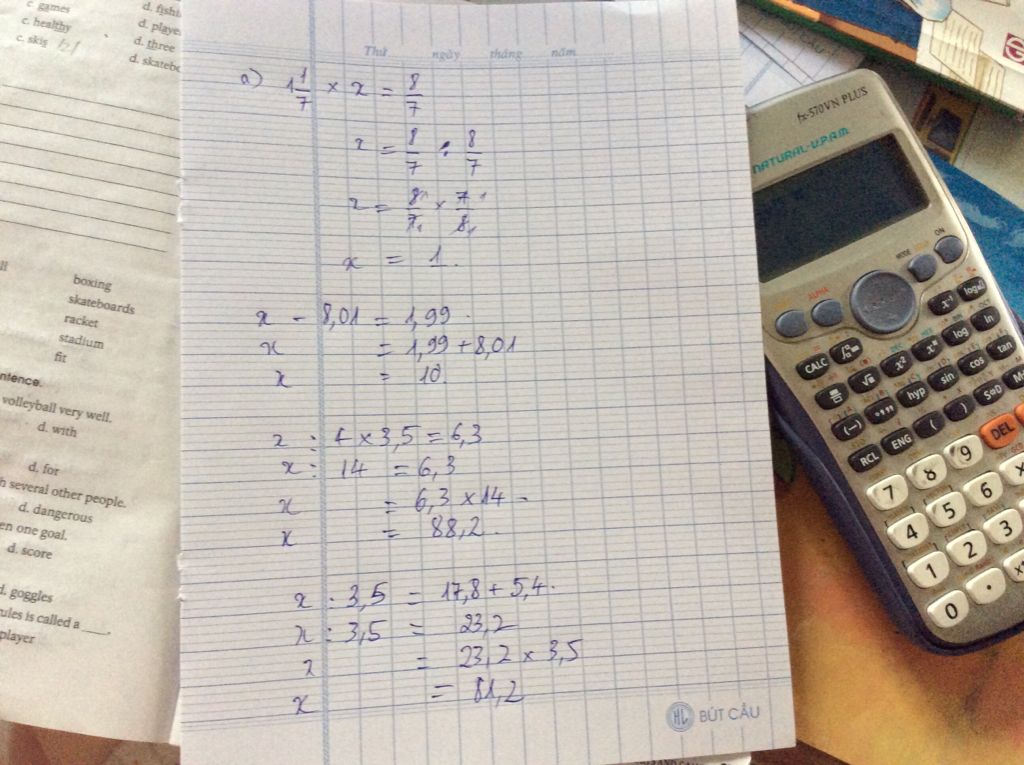 c. games
c. healthy
c. skis
d. three
boxing
skateboards
racket
stadium
fit
volleyball very well.
d. with
d. for
several other people.
d. dangerous
one goal.
d. score
d. goggles
is called a ____,
player
Thứ ngày tháng năm
a) 1 1/7 × x = 8/7
x = 8/7 : 8/7
x = 8/7 × 7/8
x = 1.
x - 8,01 = 1,99.
x = 1,99 + 8,01
x = 10.
x : 4 × 3,5 = 6,3
x : 14 = 6,3
x = 6,3 × 14
x = 88,2.
x : 3,5 = 17,8 + 5,4.
x : 3,5 = 23,2
x = 23,2 × 3,5
x = 81,2
HL BÚT CẦU
fx-570VN PLUS
NATURAL-V.P.A.M.
ALPHA MODE ON
CALC x⁻¹ logₐx
√ x² log ln
(-) °,,, hyp sin cos tan
RCL ENG ( ) S⇔D M
7 8 9 DEL
4 5 6 ×
1 2 3
0 .